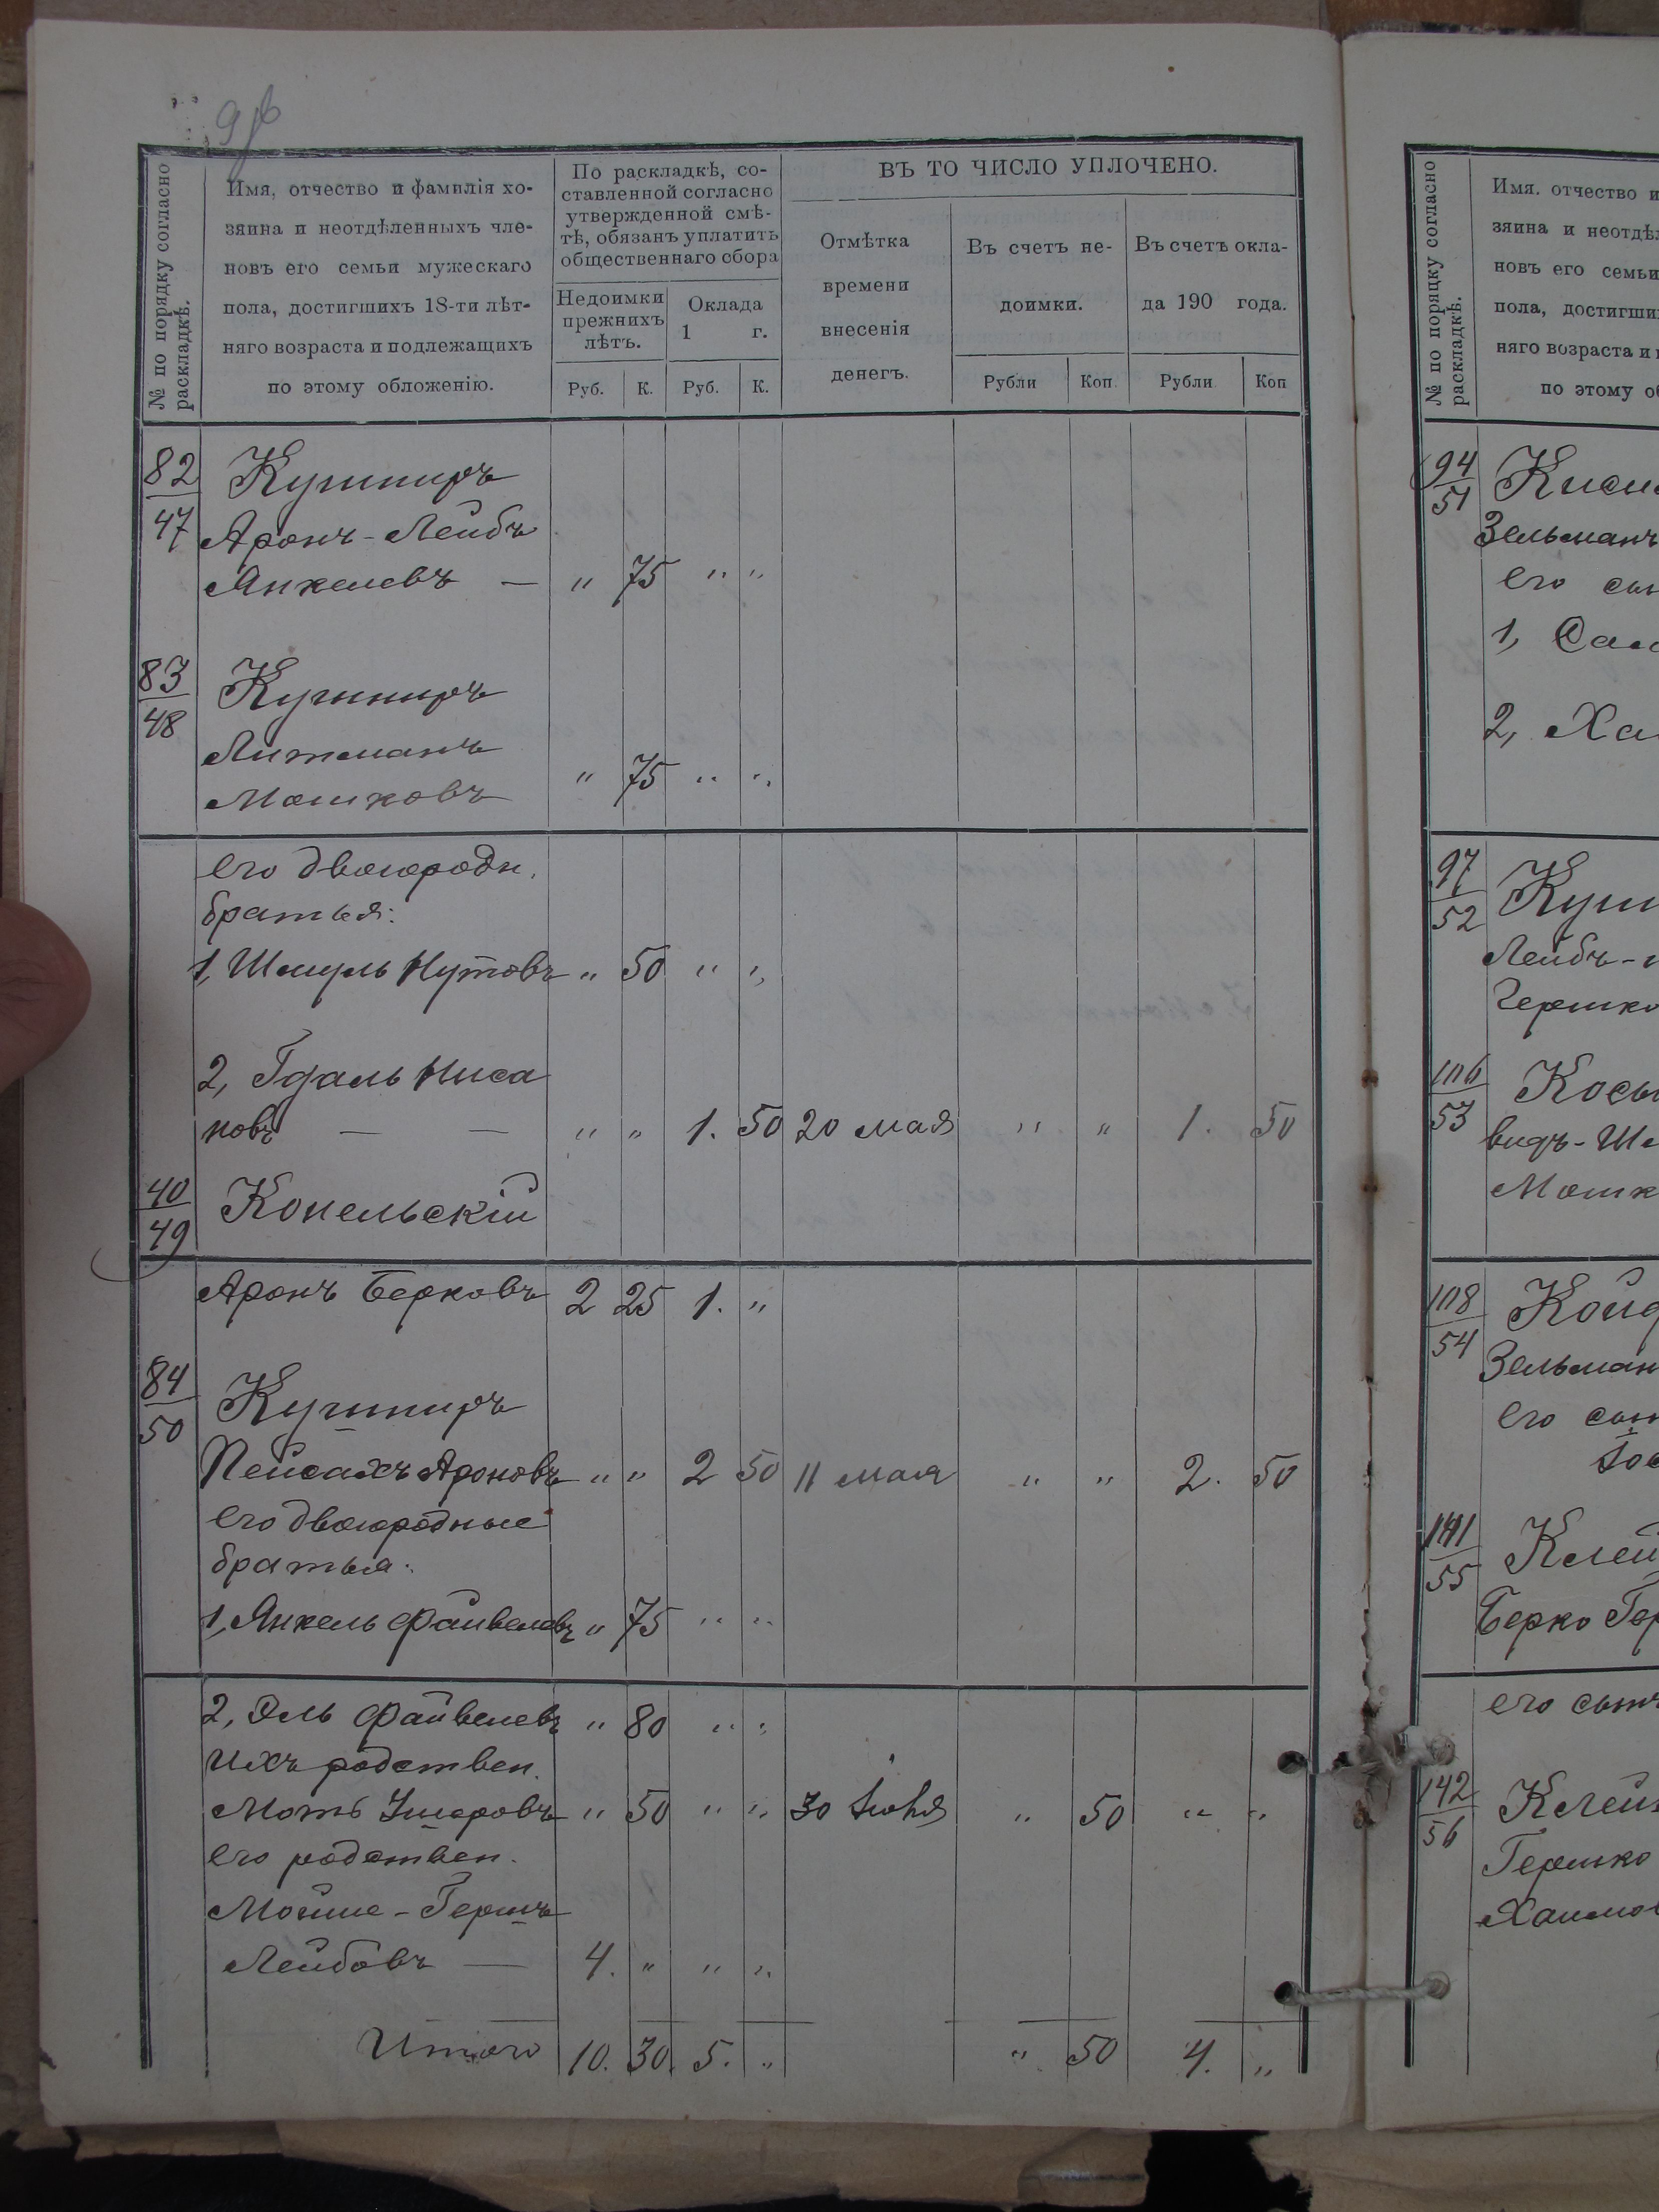 № по порядку согласно раскладкѣ.
Имя, отчество и фамилія хо-
зяина и неотдѣленныхъ чле-
новъ его семьи мужескаго
пола, достигшихъ 18-ти лѣт-
няго возраста и подлежащихъ
по этому обложенію.
По раскладкѣ, со-
ставленной согласно
утвержденной смѣ-
тѣ, обязанъ уплатить
общественнаго сбора
Недоимки
прежнихъ
лѣтъ.
Оклада
1 г.
Руб. К. Руб. К.
ВЪ ТО ЧИСЛО УПЛОЧЕНО.
Отмѣтка
времени
внесенія
денегъ.
Въ счетъ не-
доимки.
Рубли Коп.
Въ счетъ окла-
да 190 года.
Рубли Коп
82
47
Кушниръ
Аронъ-Лейбъ
Янкелевъ — „ 75 „ „
83
48
Кушниръ
Литманъ
Мошковъ „ 75 „ „
его двоюродн.
братья:
1, Шмуль Нутовъ „ 50 „ „
2, Гдаль Ниса
новъ — — „ „ 1. 50 20 мая „ „ 1. 50
40
49
Конельскій
Аронъ Берковъ 2 25 1. „
84
50
Кушниръ
Пейсахъ Ароновъ „ „ 2 50 11 мая „ „ 2. 50
его двоюродные
братья:
1, Янкель Файвелевъ „ 75 „ „
2, Эль Файвелевъ „ 80 „ „
Ихъ родствен.
Моть „ 50 „ „ 30 „ 50 „ „
его родствен.
Мойше-Гершъ
Лейбовъ — 4. „ „ „
Итого 10. 30. 5. „ „ 50 4. „
№ по порядку согласно раскладкѣ.
Имя. отчество и
зяина и неотдѣ
новъ его семьи
пола, достигши
няго возраста и
по этому о
94
51
Зельманъ
его
1,
2, Ха
97
52
Куш
Лейбъ-
Гершко
106
53
Мошк
108
54
Зельман
его
141
55
Клей
Берко Гер
его сынъ
142
56
Клей
Гершко
Хаимо